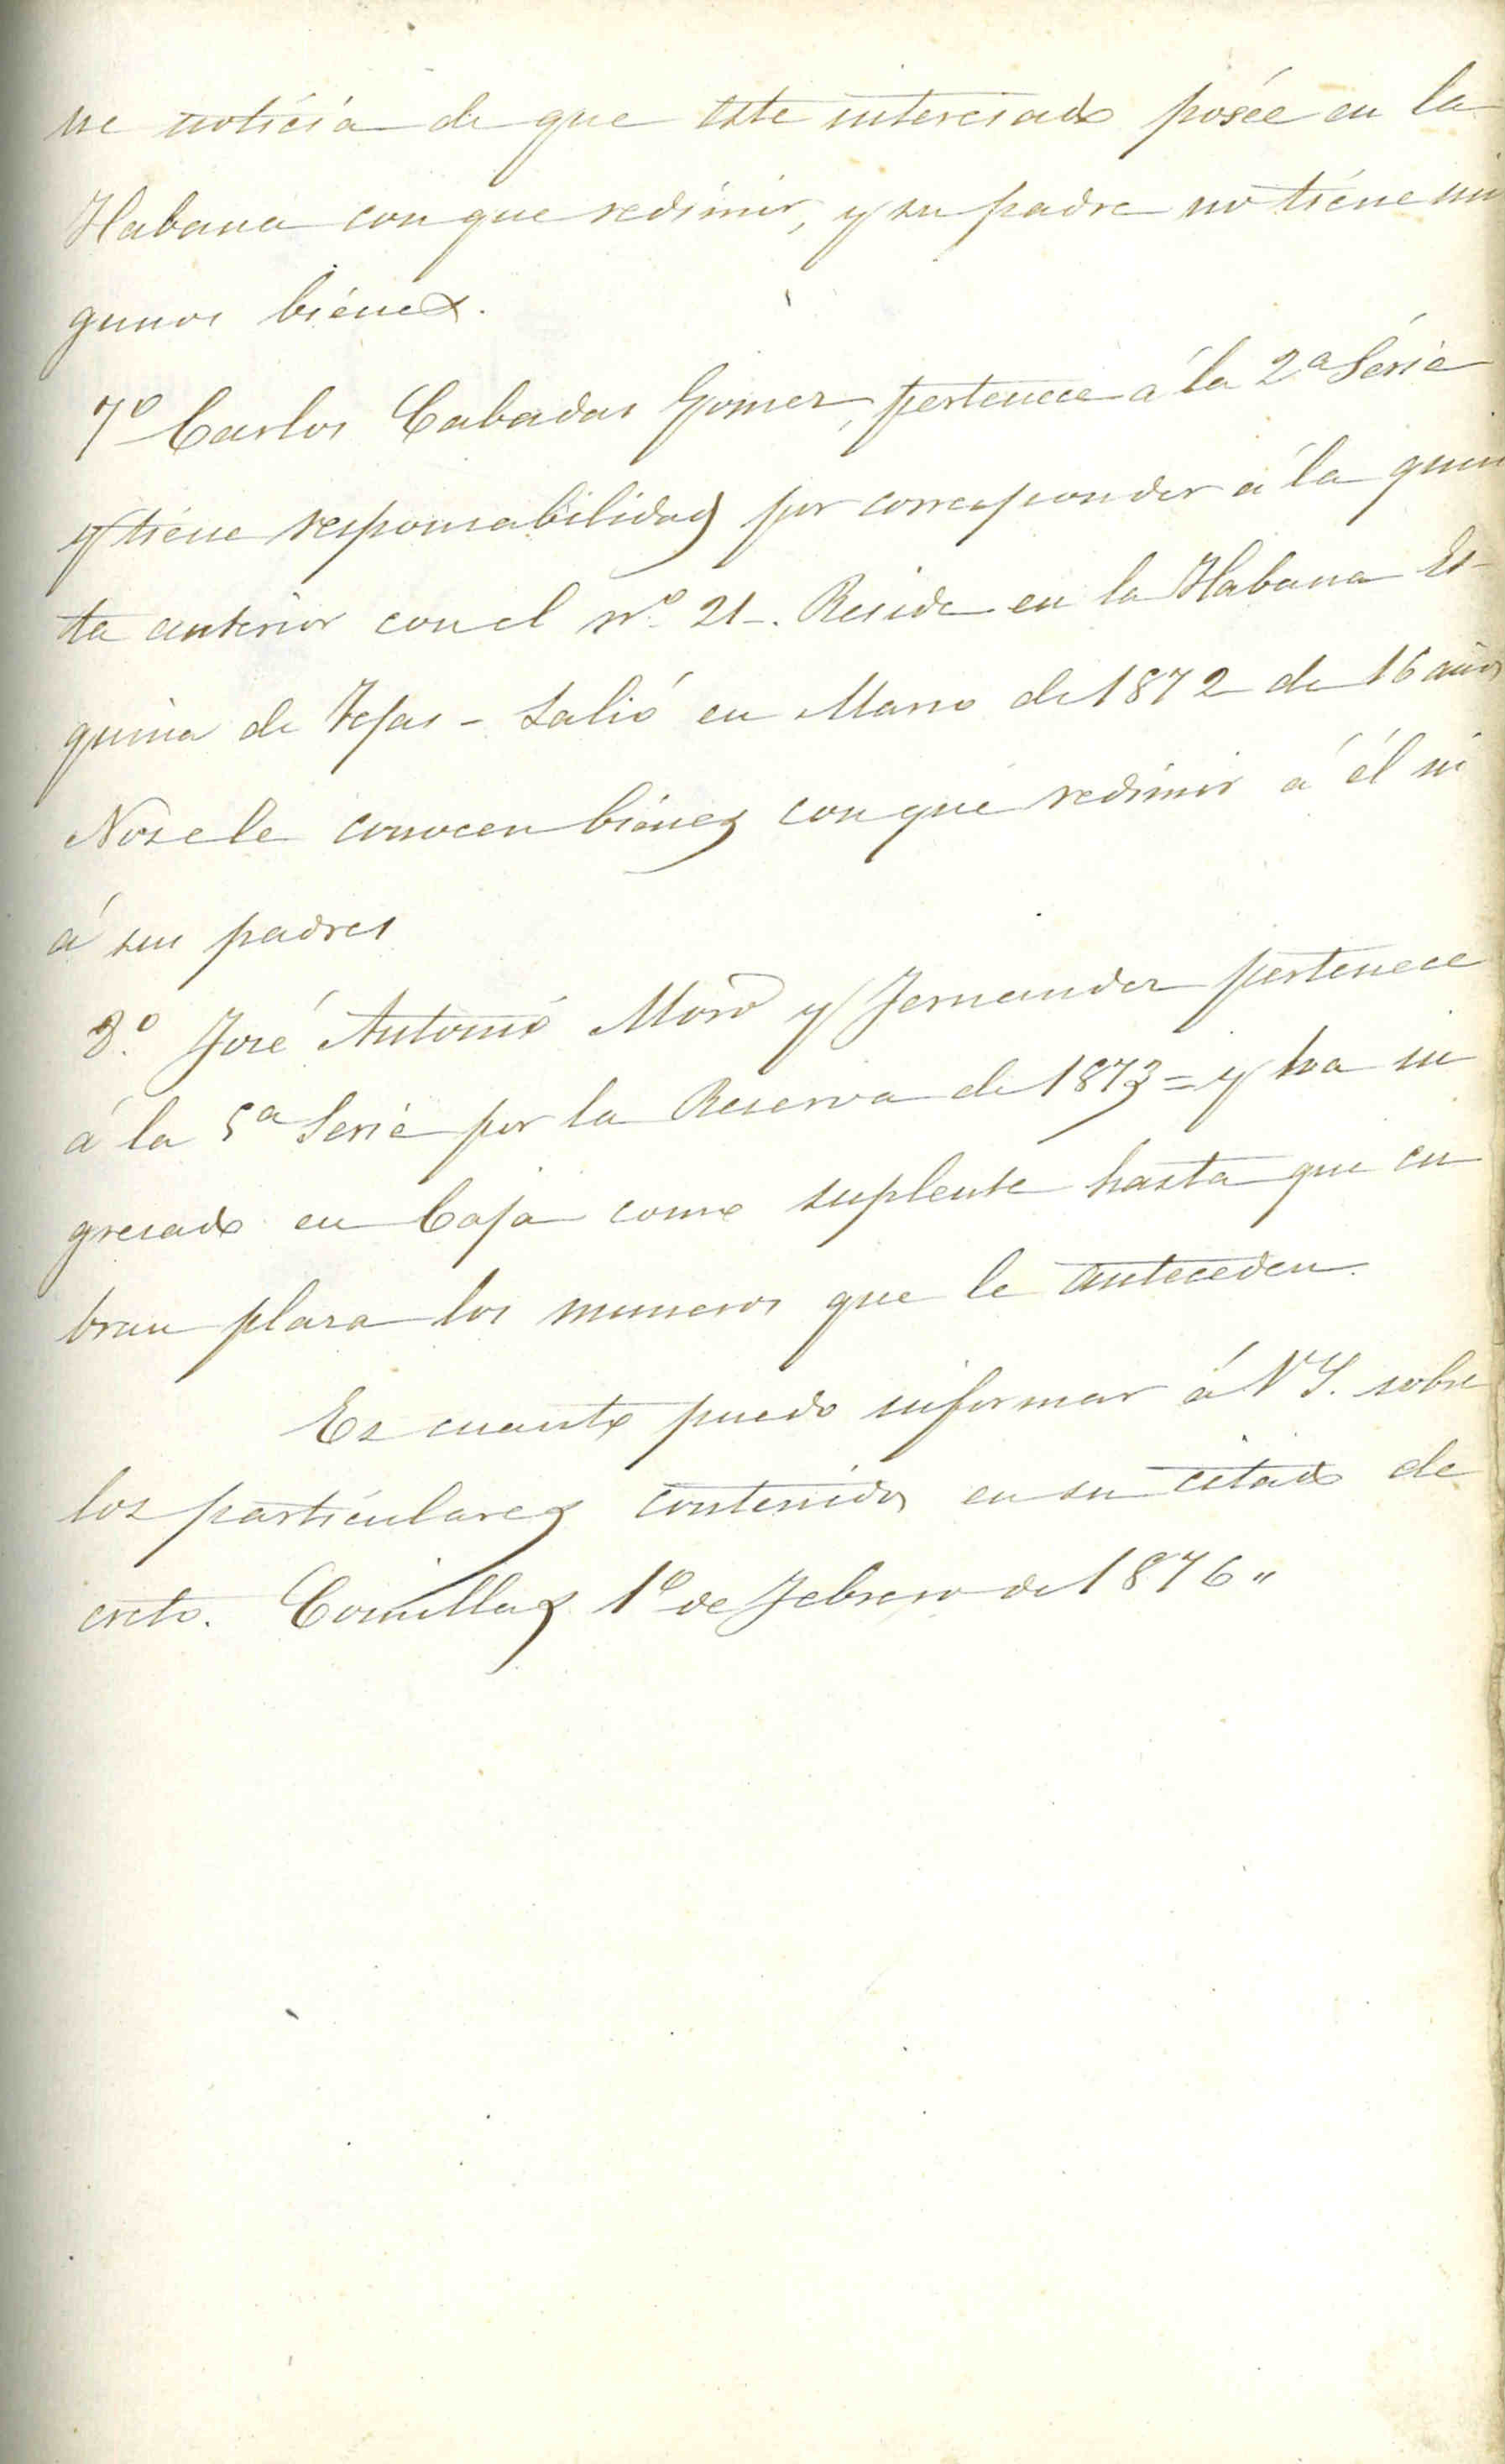 ne noticia de que este interesado posée en la
Habana con que redimir, y su padre no tiene nin
gunos bienes.
7º Carlos Cabadas Gomez, pertenece á la 2ª Série
y tiene responsabilidad por corresponder á la quin
ta anterior con el nº 21-. Reside en la Habana Es-
quina de Tejas - Salió en Marzo de 1872 de 16 años
No se le conocen bienes con que redimir á él ni
á sus padres
8º José Antonio Moro y Fernandez pertenece
á la 5ª Serie por la Reserva de 1873 = y ha in
gresado en Caja como suplente hasta que cu
bran plaza los numeros que le anteceden.
Es cuanto puedo informar á V S. sobre
los particulares contenidos en su citado de
creto. Comillas 1º de Febrero de 1876"